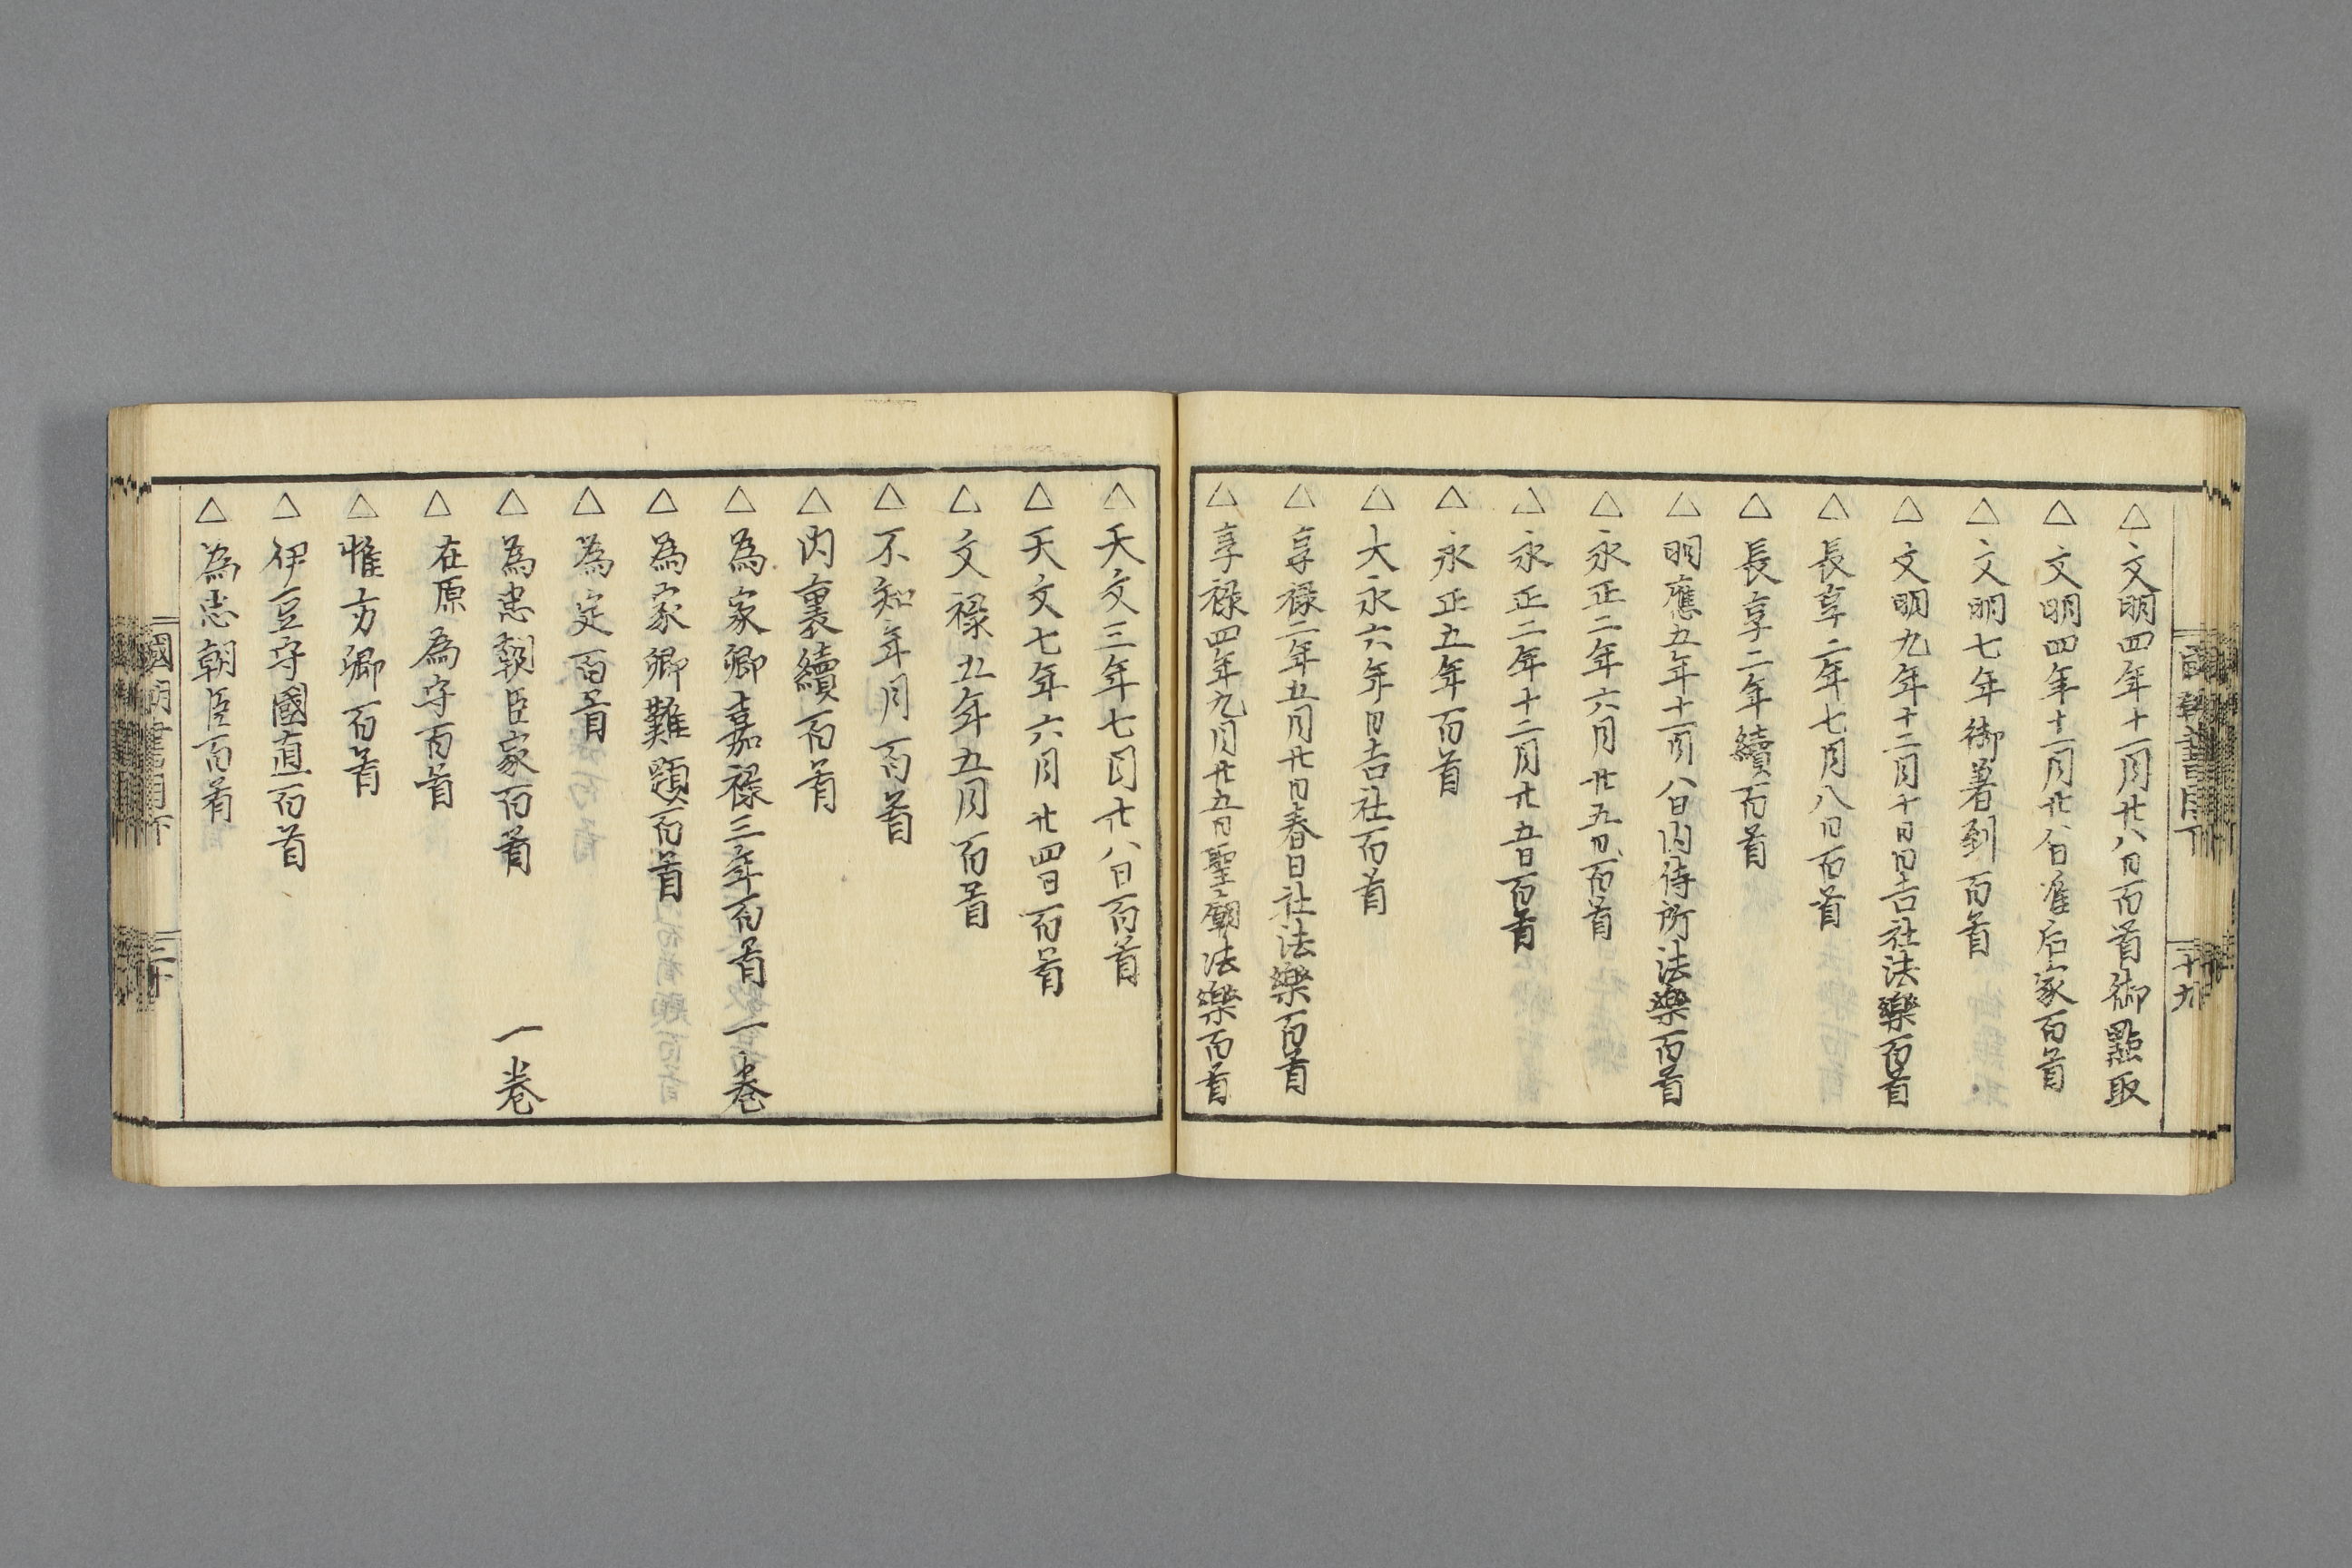 國朝書目下
二十九
△文明四年十一月廿八日百首御點取
△文明四年十一月廿八日准后家百首
△文明七年御着到百首
△文明九年十二月十日日吉社法樂百首
△長享二年七月八日百首
△長享二年續百首
△明應五年十一月八日内侍所法樂百首
△永正二年六月廿五日百首
△永正二年十二月廿五日百首
△永正五年百首
△大永六年日吉社百首
△享禄二年五月廿日春日社法樂百首
△享禄四年九月廿五日聖廟法樂百首
△天文三年七月廿八日百首
△天文七年六月廿四日百首
△文禄五年五月百首
△不知年月百首
△内裏續百首
△為家卿嘉禄三年百首 一巻
△為家卿難題百首
△為定百首
△為忠朝臣家百首 一巻
△在原為守百首
△惟方卿百首
△伊豆守國直百首
△為忠朝臣百首
國朝書目下